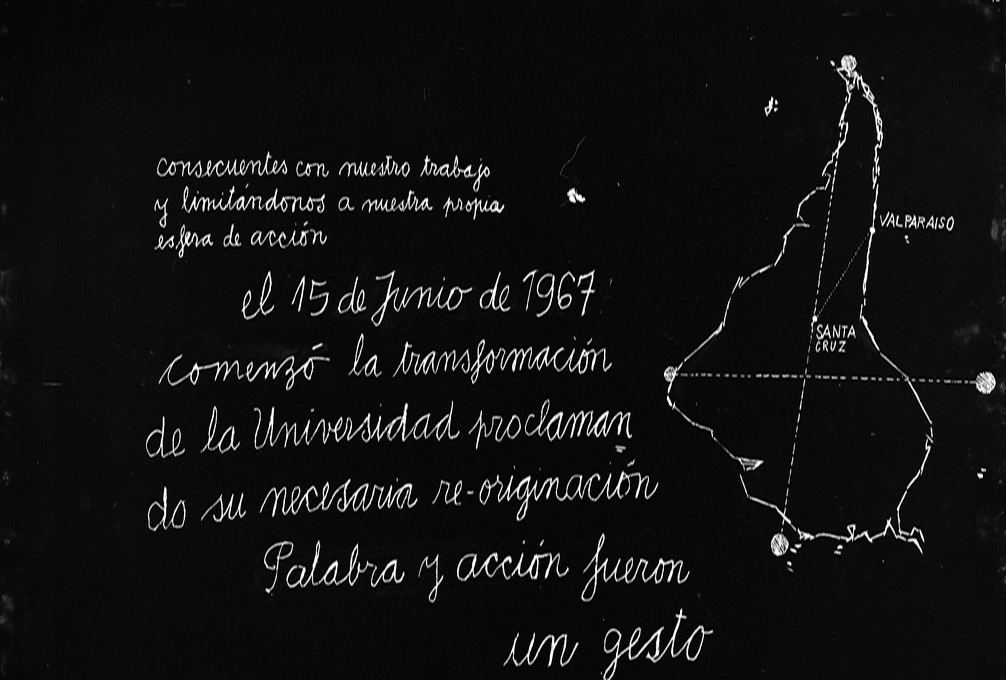 consecuentes con nuestro trabajo
y limitándonos a nuestra propia
esfera de acción
el 15 de Junio de 1967
comenzó la transformación
de la Universidad proclaman
do su necesaria re-originación
Palabra y acción fueron
un gesto
VALPARAISO
SANTA
CRUZ